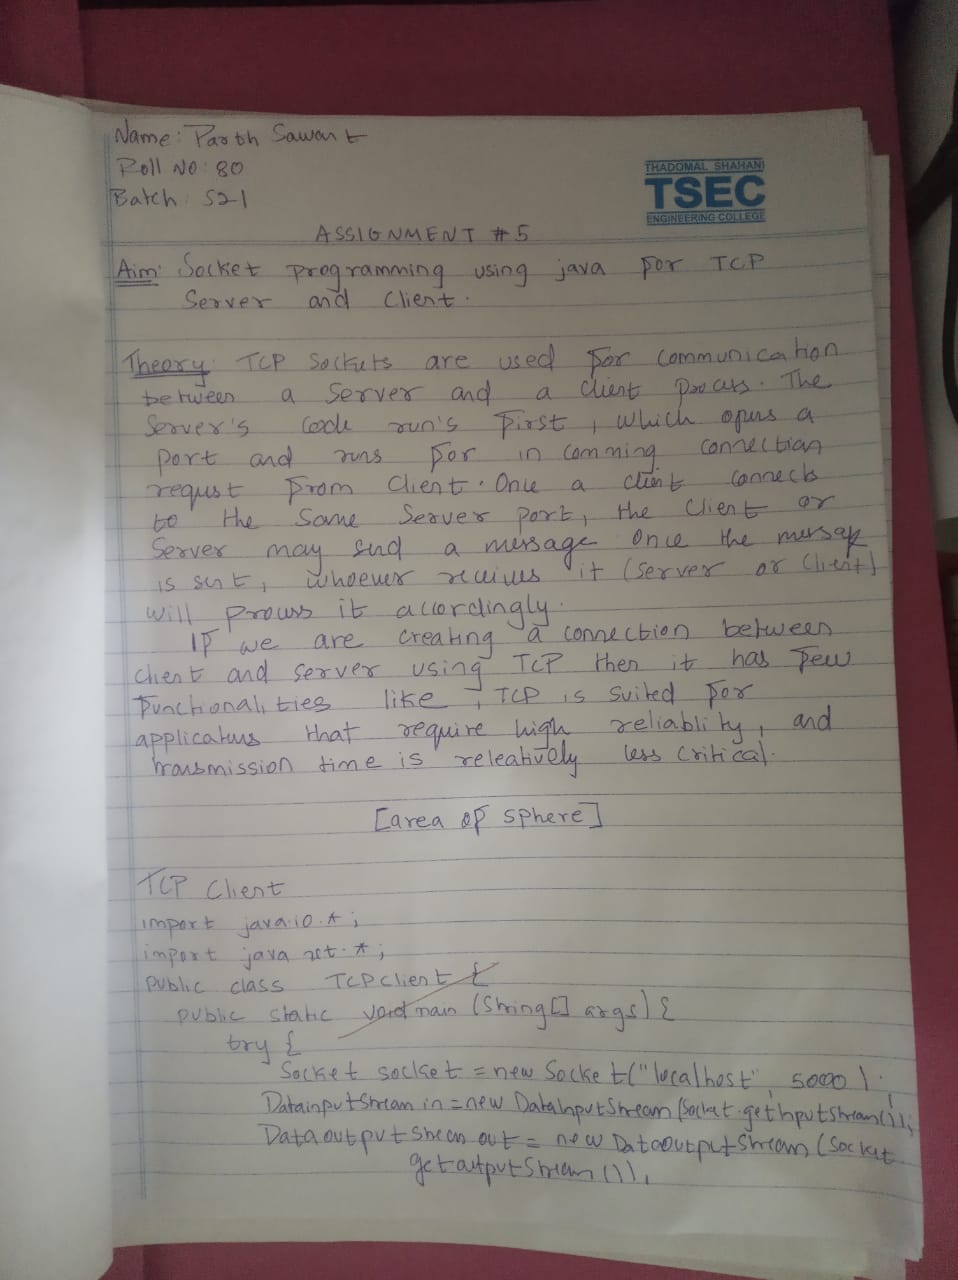 Name: Parth Sawant
Roll No: 80
Batch: S21
THADOMAL SHAHANI
TSEC
ENGINEERING COLLEGE
ASSIGNMENT #5
Aim: Socket programming using java for TCP
Server and Client.
Theory: TCP Sockets are used for communication
between a Server and a client process. The
Server's code run's first, which opens a
port and runs for in comming connection
request from Client. Once a client connects
to the same Server port, the Client or
Server may send a message. Once the message
is sent, whoever receives it (server or Client)
will process it accordingly.
If we are creating a connection between
client and server using TCP then it has few
functionalities like, TCP is suited for
applications that require high reliablity, and
transmission time is releatively less critical.
[area of sphere]
TCP Client
import java.io.*;
import java.net.*;
public class TCPClient {
public static void main (String[] args) {
try {
Socket socket = new Socket("localhost", 5000);
DatainputStream in = new DataInputStream (Socket.getInputStream());
DataoutputStream out = new DataoutputStream (Socket
getoutputStream());